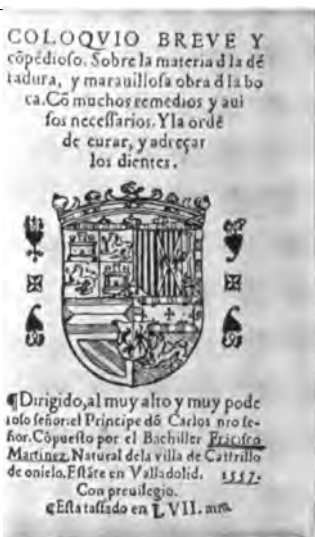 COLOQVIO BREVE Y
cõpẽdioſo. Sobre la materia d la dẽ
tadura, y marauilloſa obra d la bo
ca. Cõ muchos remedios y aui
ſos neceſſarios. Y la ordẽ
de curar, y adreçar
los dientes.
¶Dirigido, al muy alto y muy pode
roſo ſeñor: el Principe dõ Carlos nr̃o ſe-
ñor. Cõpueſto por el Bachiller Frãciſco
Martinez. Natural dela villa de Caſtrillo
de onielo. Eſtãte en Valladolid. 1557.
Con preuilegio.
¶Eſta taſſado en LVII. mrs̃.